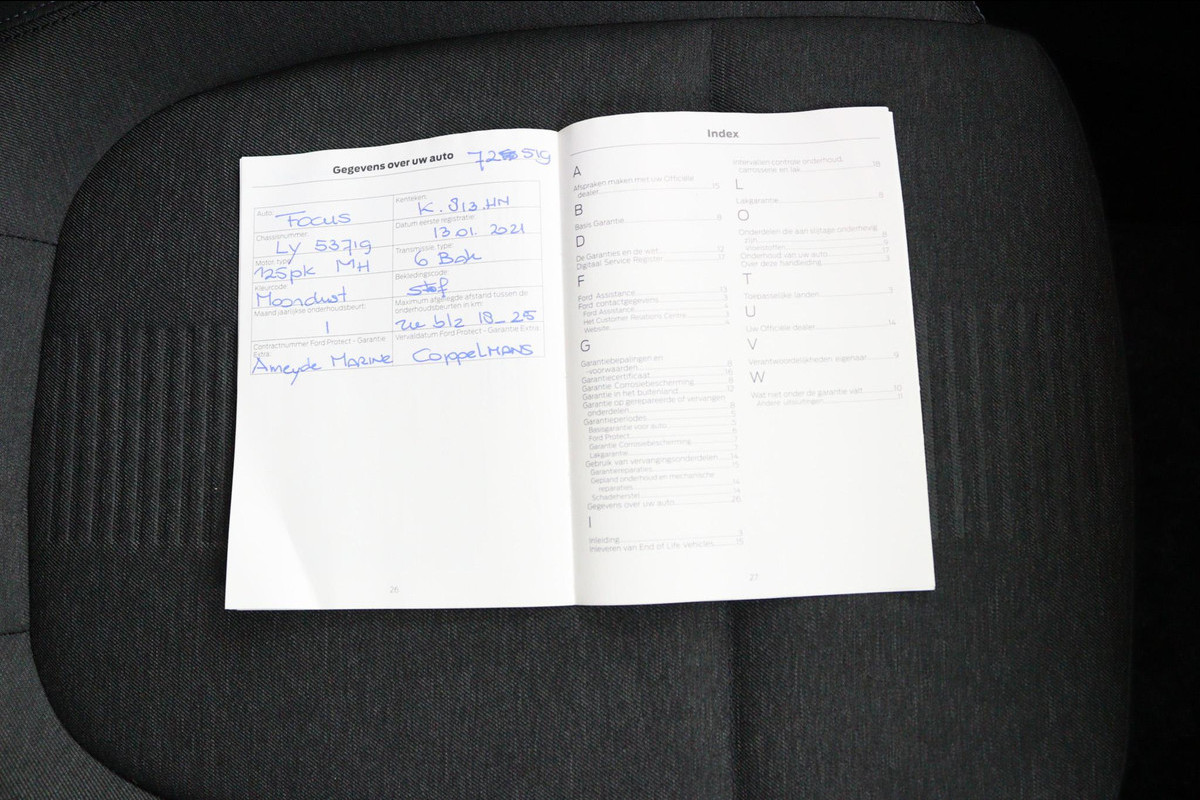 Gegevens over uw auto
Auto: Focus
Kenteken: K.813.HN
Chassisnummer: LY 53719
Datum eerste registratie: 13.01.2021
Motor, type: 125pk MH
Transmissie, type: 6 Bak
Kleurcode: Moondust
Bekledingscode: stof
Maand jaarlijkse onderhoudsbeurt: 1
Maximum afgelegde afstand tussen de onderhoudsbeurten in km: zie blz 18_25
Contractnummer Ford Protect - Garantie Extra: Ameyde MARINE
Vervaldatum Ford Protect - Garantie Extra: CoppelMANS
26
Index
A
Afspraken maken met uw Officiële
dealer 15
B
Basis Garantie 8
D
De Garanties en de wet 12
Digitaal Service Register 17
F
Ford Assistance 13
Ford contactgegevens
Ford Assistance
Het Customer Relations Centre
Website
G
Garantiebepalingen en
-voorwaarden
Garantiecertificaat
Garantie Corrosiebescherming
Garantie in het buitenland 12
Garantie op gerepareerde of vervangen
onderdelen
Garantieperiodes
Basisgarantie voor auto
Ford Protect
Garantie Corrosiebescherming
Lakgarantie
Gebruik van vervangingsonderdelen 14
Garantiereparaties
Gepland onderhoud en mechanische
reparaties 14
Schadeherstel 14
Gegevens over uw auto 26
I
Inleiding 3
Inleveren van End of Life Vehicles 15
Intervallen controle onderhoud,
carrosserie en lak 18
L
Lakgarantie
O
Onderdelen die aan slijtage onderhevig
zijn
Vloeistoffen
Onderhoud van uw auto 17
Over deze handleiding 3
T
Toepasselijke landen 3
U
Uw Officiële dealer 14
V
Verantwoordelijkheden eigenaar 9
W
Wat niet onder de garantie valt 10
Andere uitsluitingen 11
27